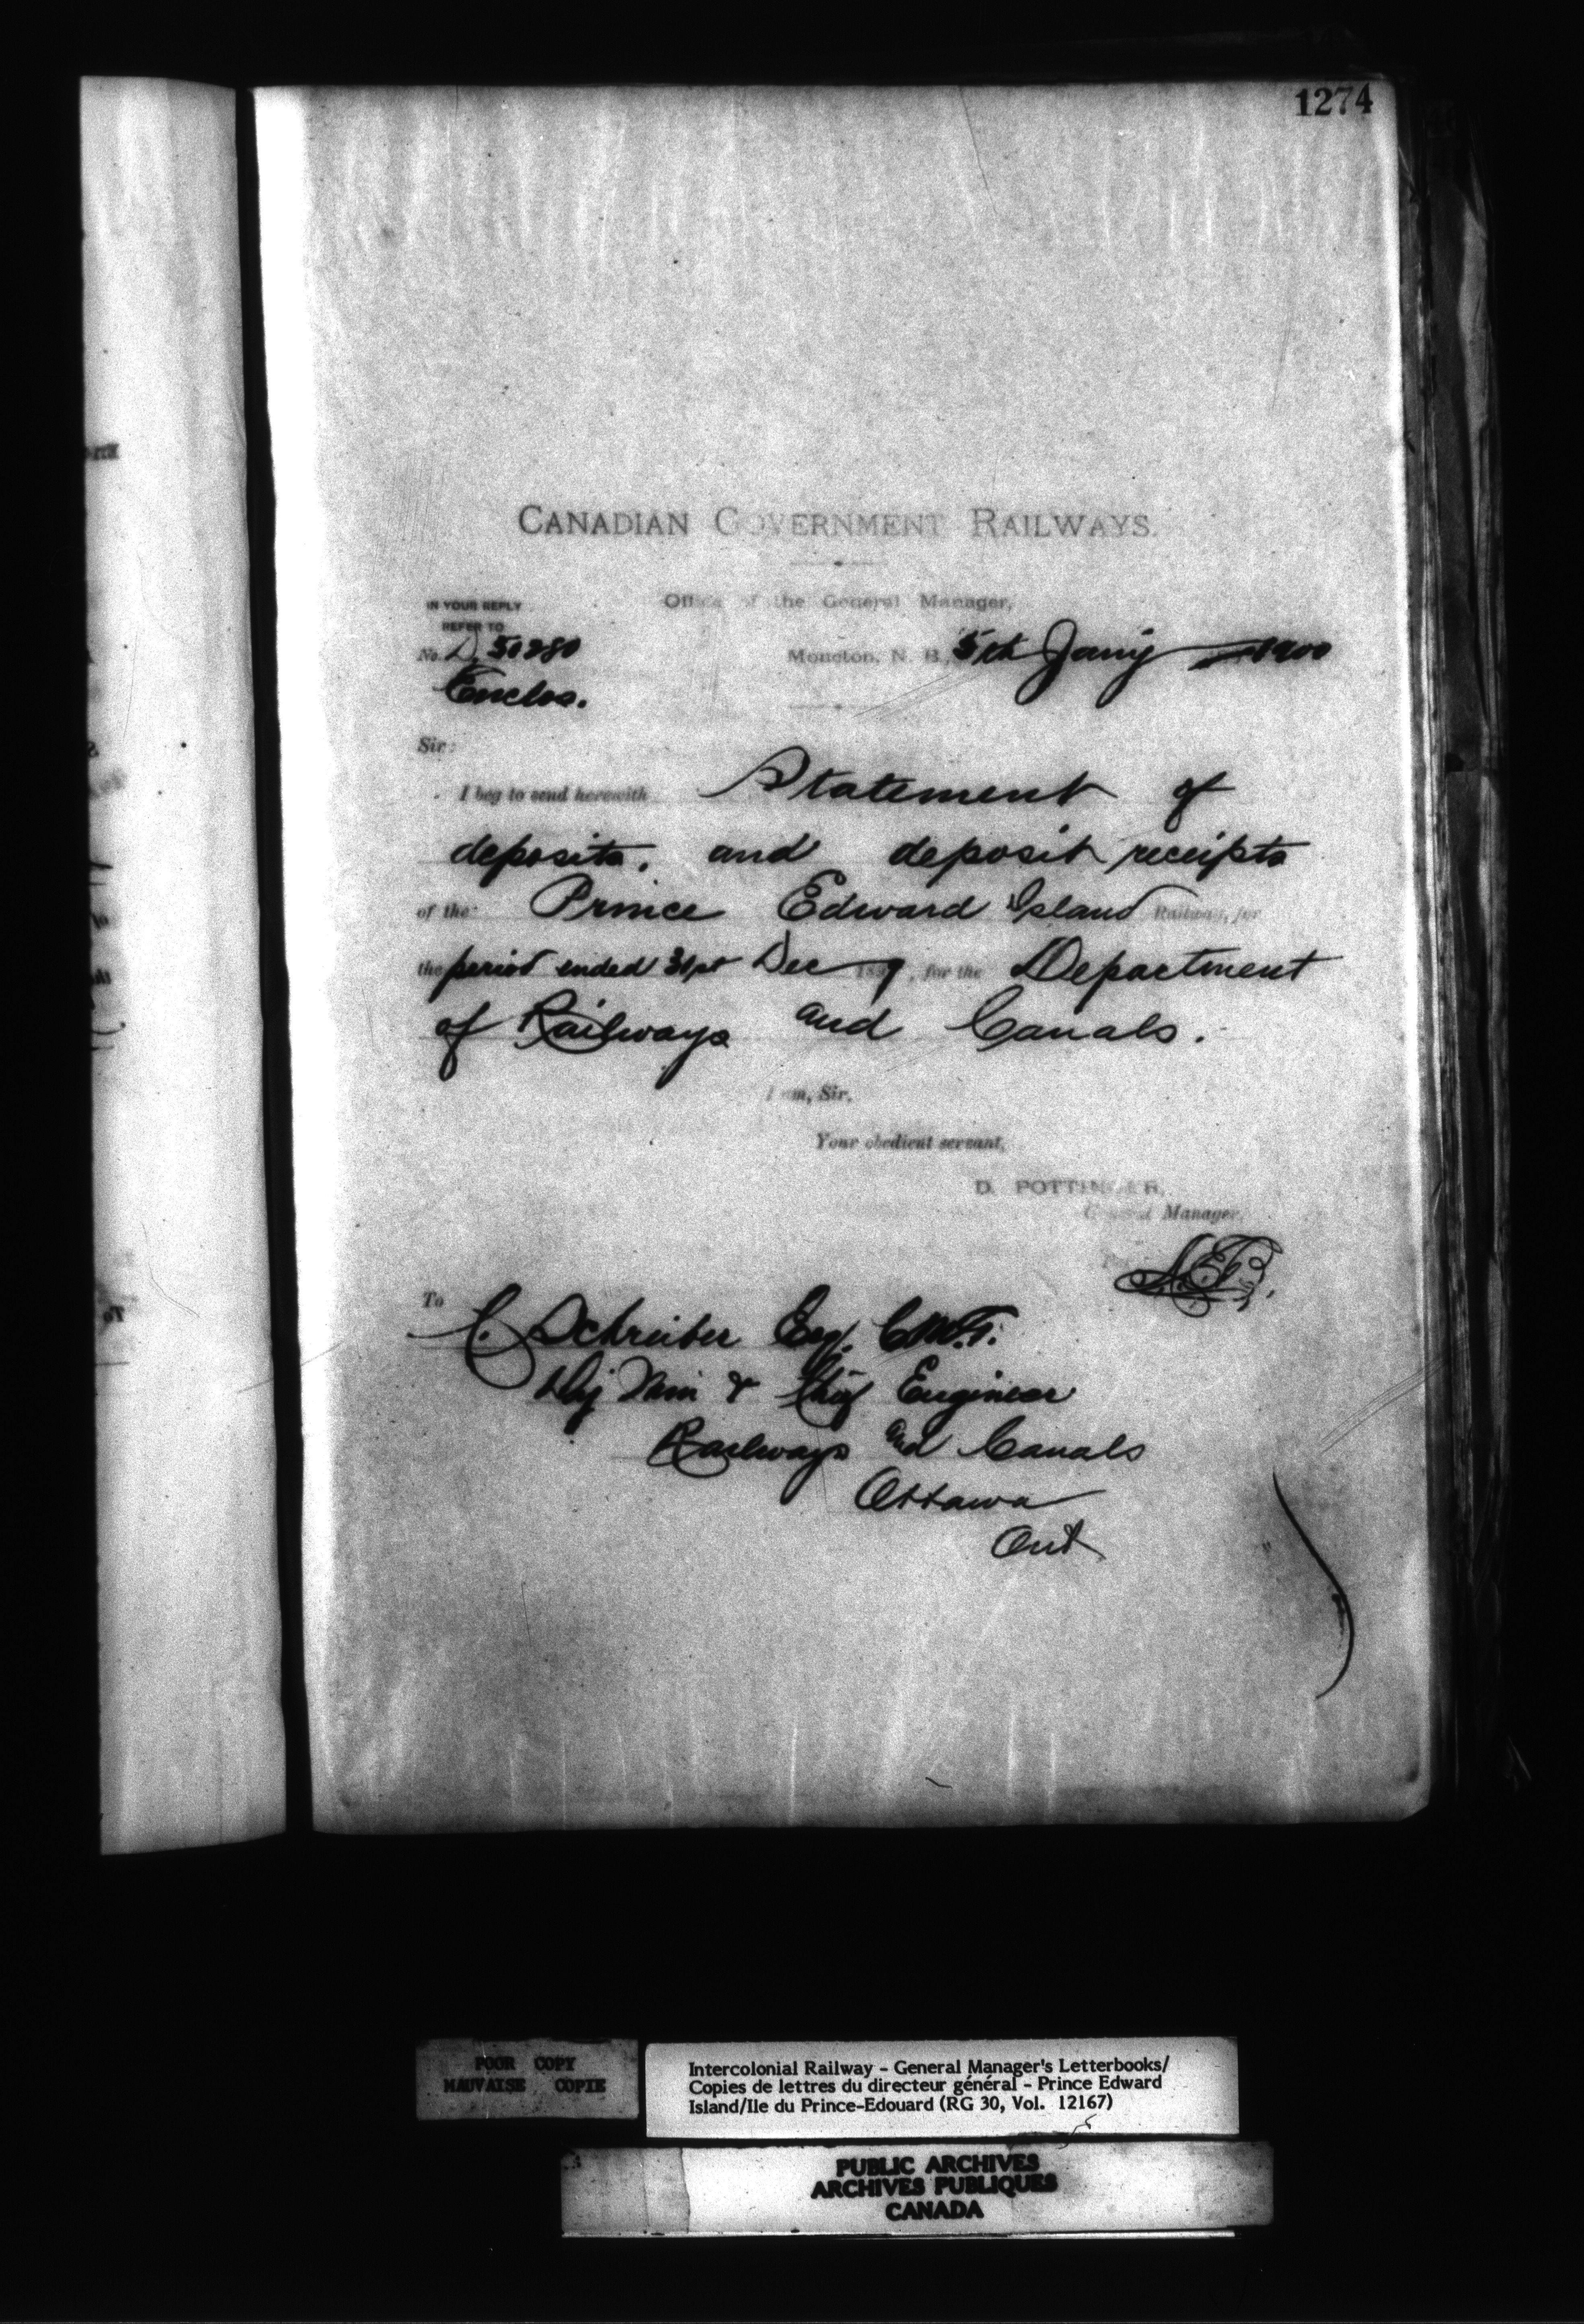 1274
CANADIAN GOVERNMENT RAILWAYS.
Office of the General Manager,
IN YOUR REPLY
REFER TO
No. D. 50280
Moncton, N. B., 5th Jany 1900
Enclos.
Sir:
I beg to send herewith Statement of
deposits, and deposit receipts
of the Prince Edward Island Railway, for
the period ended 31st Dec 1899, for the Department
of Railways and Canals.
I am, Sir,
Your obedient servant,
D. POTTINGER,
General Manager.
To
C. Schreiber Esq. C.M.G.
Dy Min & Chief Engineer
Railways and Canals
Ottawa
Ont
POOR COPY
MAUVAISE COPIE
Intercolonial Railway - General Manager's Letterbooks/
Copies de lettres du directeur général - Prince Edward
Island/Ile du Prince-Edouard (RG 30, Vol. 12167)
PUBLIC ARCHIVES
ARCHIVES PUBLIQUES
CANADA